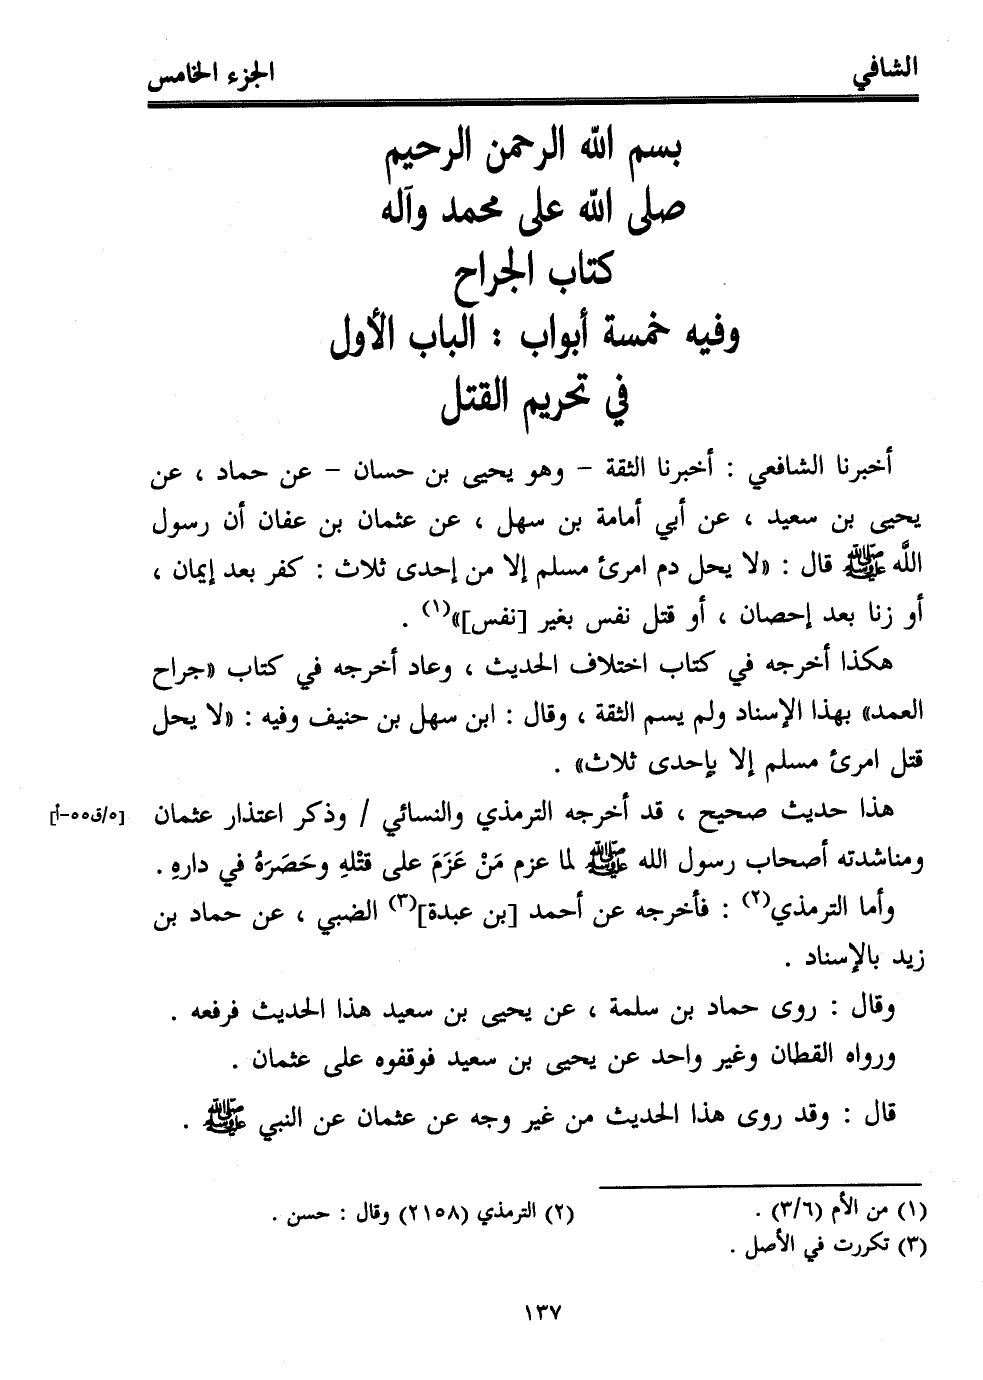 الشافي
الجزء الخامس
بسم الله الرحمن الرحيم
صلى الله على محمد وآله
كتاب الجراح
وفيه خمسة أبواب : الباب الأول
في تحريم القتل
أخبرنا الشافعي : أخبرنا الثقة - وهو يحيى بن حسان - عن حماد ، عن
يحيى بن سعيد ، عن أبي أمامة بن سهل ، عن عثمان بن عفان أن رسول
اللَّه ﷺ قال : «لا يحل دم امرئ مسلم إلا من إحدى ثلاث : كفر بعد إيمان ،
أو زنا بعد إحصان ، أو قتل نفس بغير [نفس]»(١) .
هكذا أخرجه في كتاب اختلاف الحديث ، وعاد أخرجه في كتاب «جراح
العمد» بهذا الإسناد ولم يسم الثقة ، وقال : ابن سهل بن حنيف وفيه : «لا يحل
قتل امرئ مسلم إلا بإحدى ثلاث» .
هذا حديث صحيح ، قد أخرجه الترمذي والنسائي / وذكر اعتذار عثمان
[٥/ق٥٥-أ]
ومناشدته أصحاب رسول الله ﷺ لما عزم مَنْ عَزَمَ على قتْلهِ وحَصَرَهُ في دارهِ .
وأما الترمذي(٢) : فأخرجه عن أحمد [بن عبدة](٣) الضبي ، عن حماد بن
زيد بالإسناد .
وقال : روى حماد بن سلمة ، عن يحيى بن سعيد هذا الحديث فرفعه .
ورواه القطان وغير واحد عن يحيى بن سعيد فوقفوه على عثمان .
قال : وقد روى هذا الحديث من غير وجه عن عثمان عن النبي ﷺ .
(١) من الأم (٣/٦) .
(٢) الترمذي (٢١٥٨) وقال : حسن .
(٣) تكررت في الأصل .
١٣٧